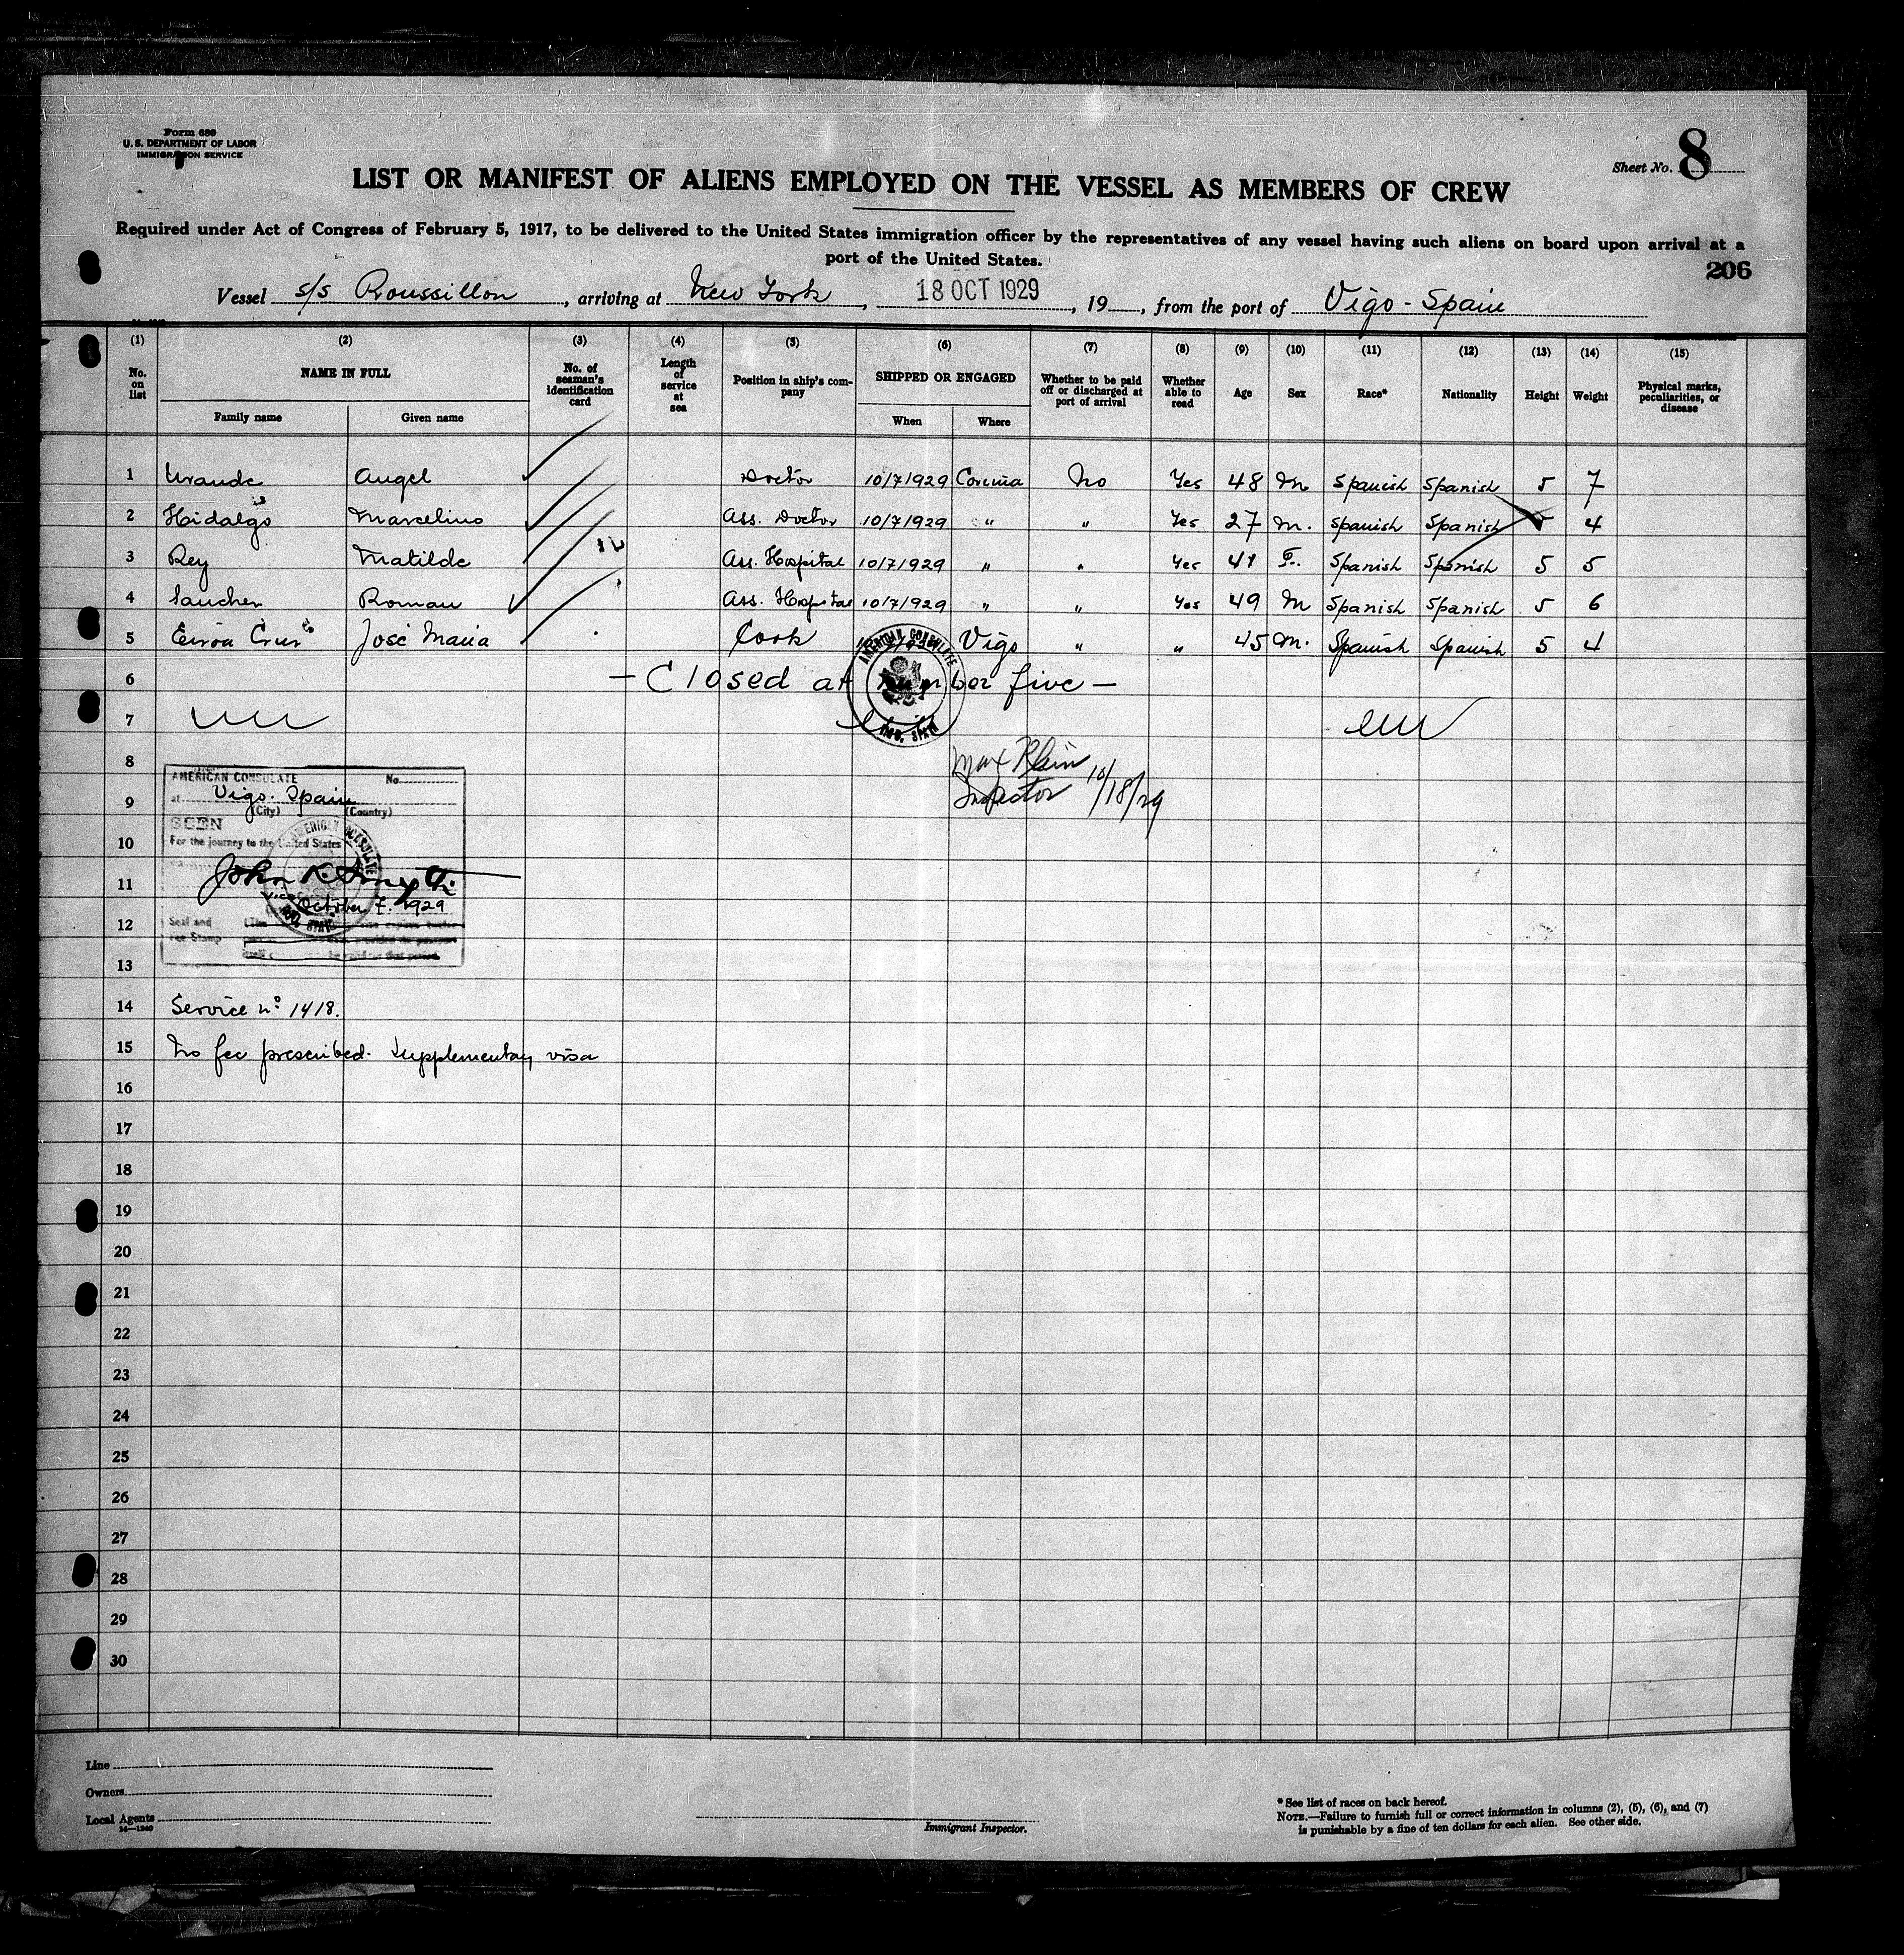 Form 680
U. S. DEPARTMENT OF LABOR
IMMIGRATION SERVICE
Sheet No. 8
LIST OR MANIFEST OF ALIENS EMPLOYED ON THE VESSEL AS MEMBERS OF CREW
Required under Act of Congress of February 5, 1917, to be delivered to the United States immigration officer by the representatives of any vessel having such aliens on board upon arrival at a
port of the United States.
206
Vessel s/s Roussillon, arriving at New York, 18 OCT 1929, 19, from the port of Vigo - Spain
(1) (2) (3) (4) (5) (6) (7) (8) (9) (10) (11) (12) (13) (14) (15)
No. on list NAME IN FULL Family name Given name No. of seaman's identification card Length of service at sea Position in ship's company SHIPPED OR ENGAGED When Where Whether to be paid off or discharged at port of arrival Whether able to read Age Sex Race* Nationality Height Weight Physical marks, peculiarities, or disease
1 Angel Doctor 10/7/929 No Yes 48 M Spanish Spanish 5 7
2 Hidalgo Marcelino Ass. Doctor 10/7/929 " " Yes 27 M. Spanish Spanish 5 4
3 Rey Matilde Ass. Hospital 10/7/929 " " Yes 41 F. Spanish Spanish 5 5
4 Sanchez Roman Ass. Hospital 10/7/929 " " Yes 49 M Spanish Spanish 5 6
5 José Maria Cook Vigo " " 45 M. Spanish Spanish 5 4
6 — Closed at number five —
7
8 Max Klein
9 Inspector 10/18/29
AMERICAN CONSULATE No.
at Vigo. Spain
(City) (Country)
SEEN
For the journey to the United States
10
11 John K. Smyth
October 7. 1929
12 Seal and
Fee Stamp
13
AMERICAN CONSULATE
VIGO, SPAIN
14 Service nº 1418.
15 No fee prescribed. Supplementary visa
16
17
18
19
20
21
22
23
24
25
26
27
28
29
30
Line
Owners
Local Agents
14—1240
Immigrant Inspector.
* See list of races on back hereof.
NOTE.—Failure to furnish full or correct information in columns (2), (5), (6), and (7)
is punishable by a fine of ten dollars for each alien. See other side.